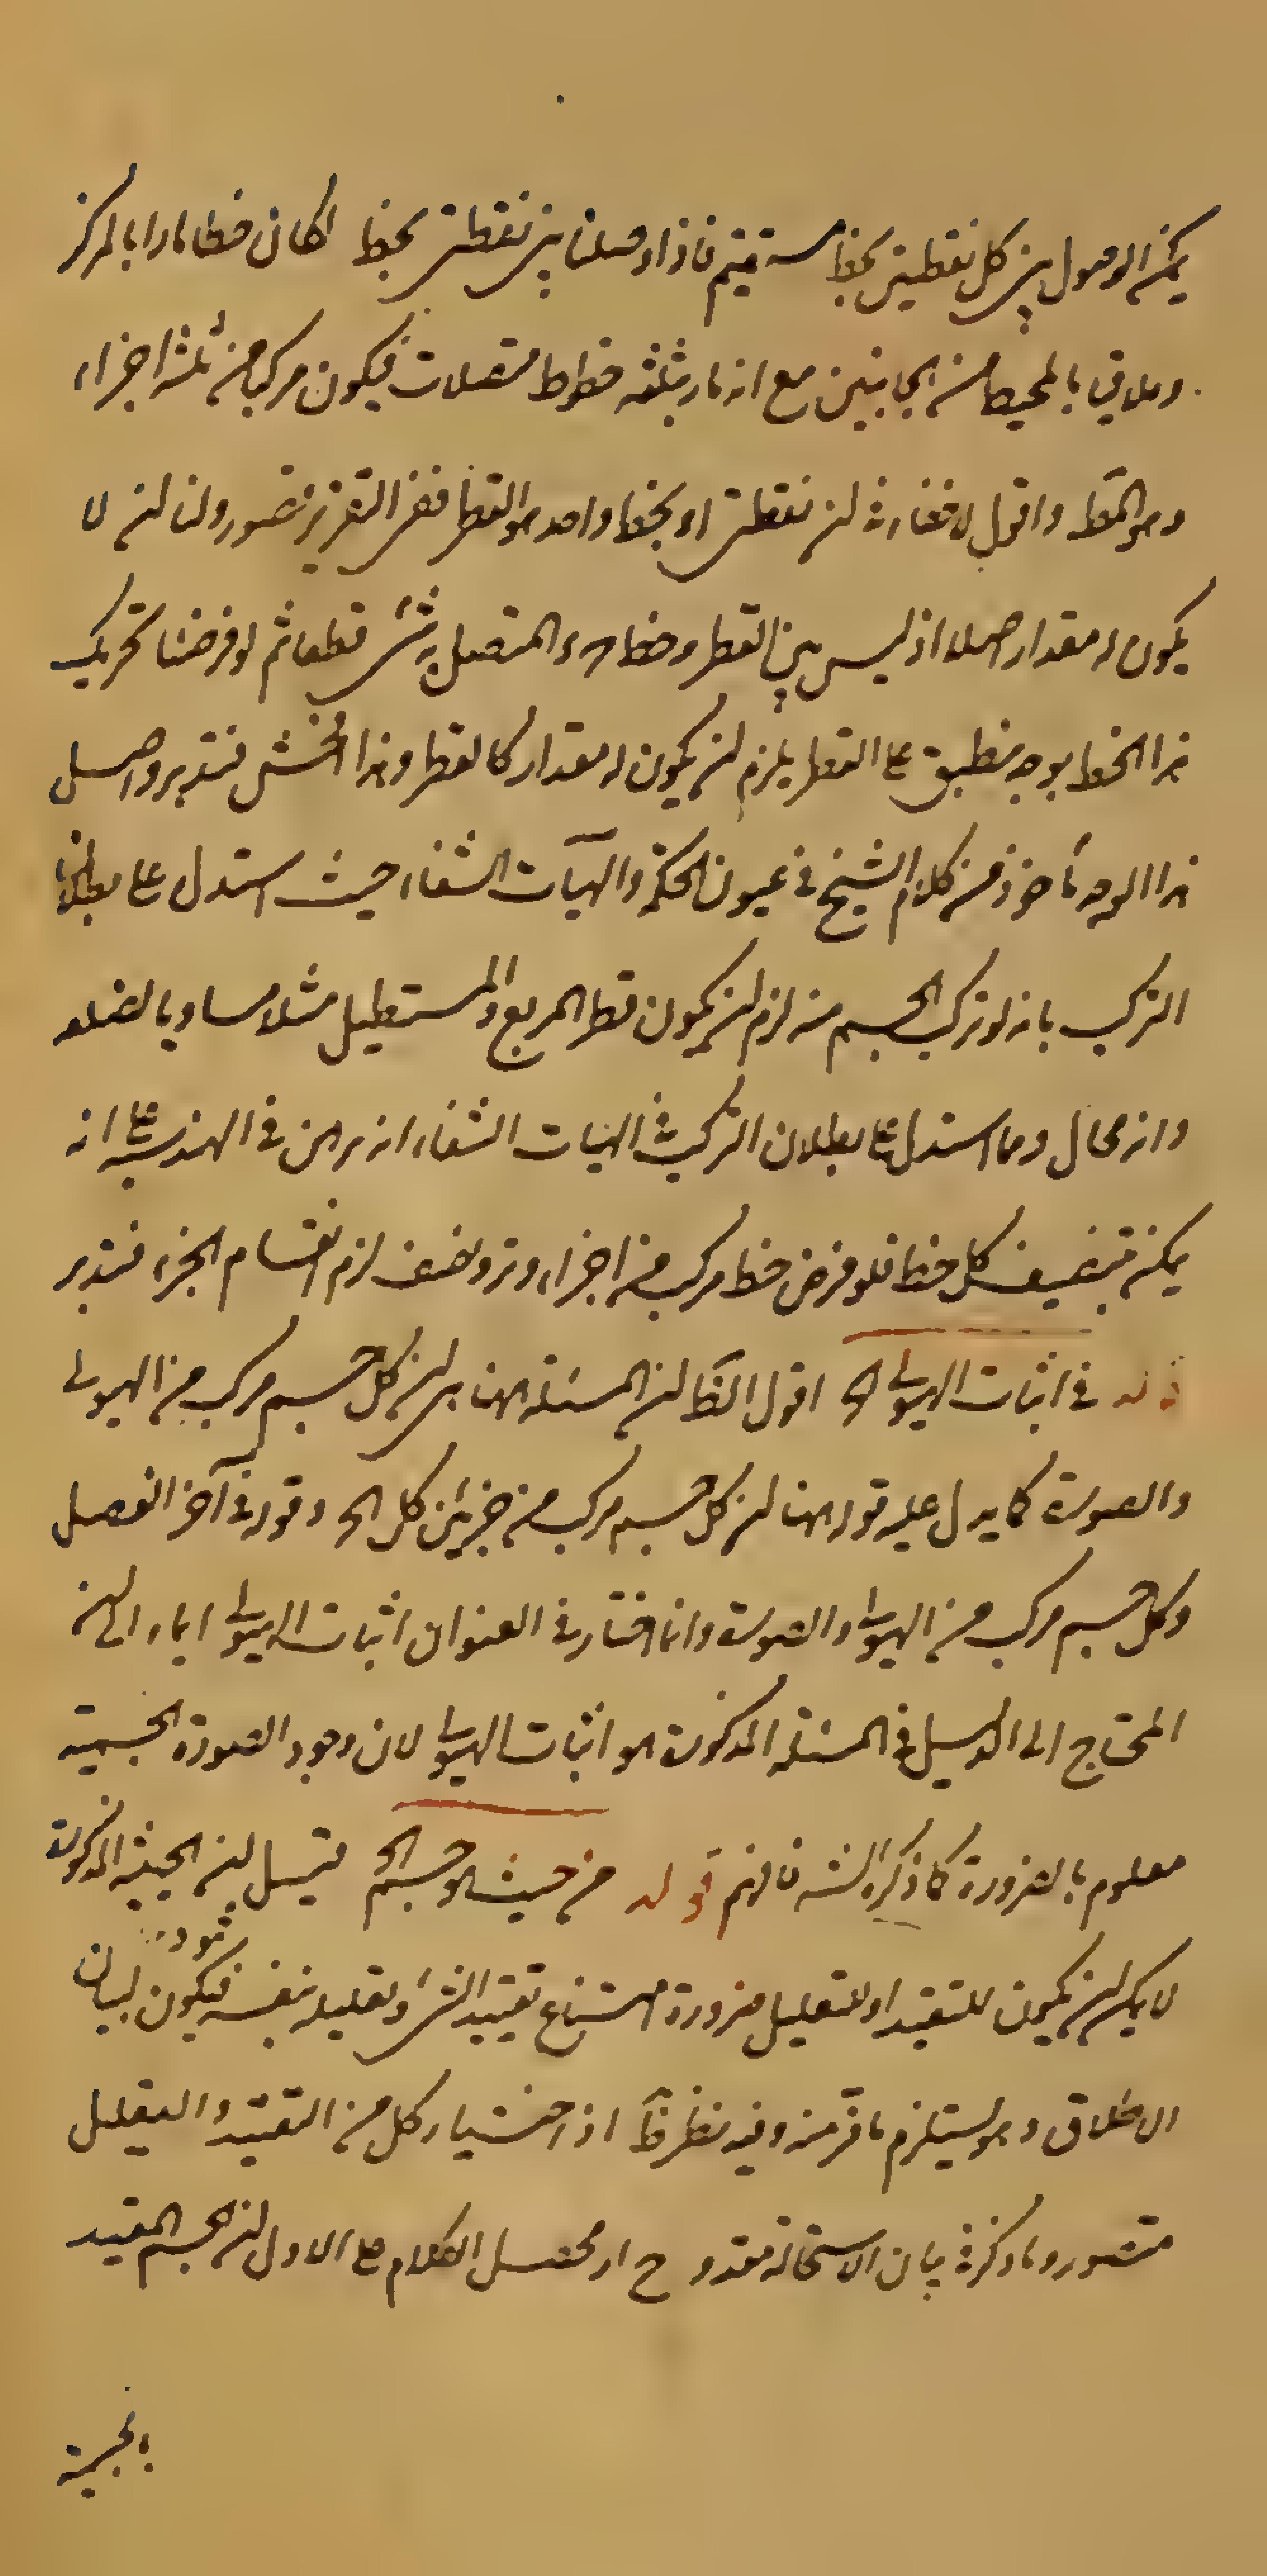 يمكن الوصول بين كل نقطتين بخط مستقيم فاذا وصلنا بين نقطتى بخط لكان خطا مارا بالمركز
وملاقيا بالمحيط من الجانبين مع انه مار بثلثة خطوط متصلات فيكون مركبا من ثلثة اجزاء
وهو القطر واقول لا خفاء فى ان نقطتى بخط واحد هو القطر ففى التقرير قصور ولنا ان لا
يكون له مقدار اصلا اذ ليس بين القطر وخط المتصل به شئ قطعا ثم لو فرضنا تحريك
هذا الخط بوجه ينطبق على القطر يلزم ان يكون له مقدار كالقطر وهذا افحش فتدبر واصل
هذا الوجه ماخوذ من كلام الشيخ فى عيون الحكمة والهيات الشفاء حيث استدل على بطلان
التركب بانه لو تركب الجسم منه لزم ان يكون قطر المربع والمستطيل مثلا مساويا لضلعه
وانه محال ومما استدل على بطلان التركب فى الهيات الشفاء انه برهن فى الهندسة على انه
يمكن تنصيف كل خط فلو فرض خط مركب من اجزاء وتر ونصف لزم انقسام الجزء فتدبر
قوله فى اثبات الهيولى اه اقول الظ ان المسئلة ههنا هى ان كل جسم مركب من الهيولى
والصورة كما يدل عليه قوله ههنا ان كل جسم مركب من جزئين كل الخ وقوله فى آخر الفصل
وكل جسم مركب من الهيولى والصورة وانما اختار فى العنوان اثبات الهيولى ايماء الى ان
المحتاج الى الدليل فى المسئلة المذكورة هو اثبات الهيولى لان وجود الصورة الجسمية
معلوم بالضرورة كما ذكره الشه فافهم قوله من حيث هو جسم الخ قيل ان الحيثية المذكورة
لا يمكن ان يكون للتقييد او للتعليل ضرورة امتناع تقييد الشئ وتعليله بنفسه فيكون لبيان
الاطلاق وهو يستلزم ما فر منه وفيه نظر اذ اختيار كل من التقييد والتعليل
متصور وما ذكره فى بيان الاستحالة مقدوح اذ محصل الكلام على الاول ان الجسم المقيد
بالجسمية